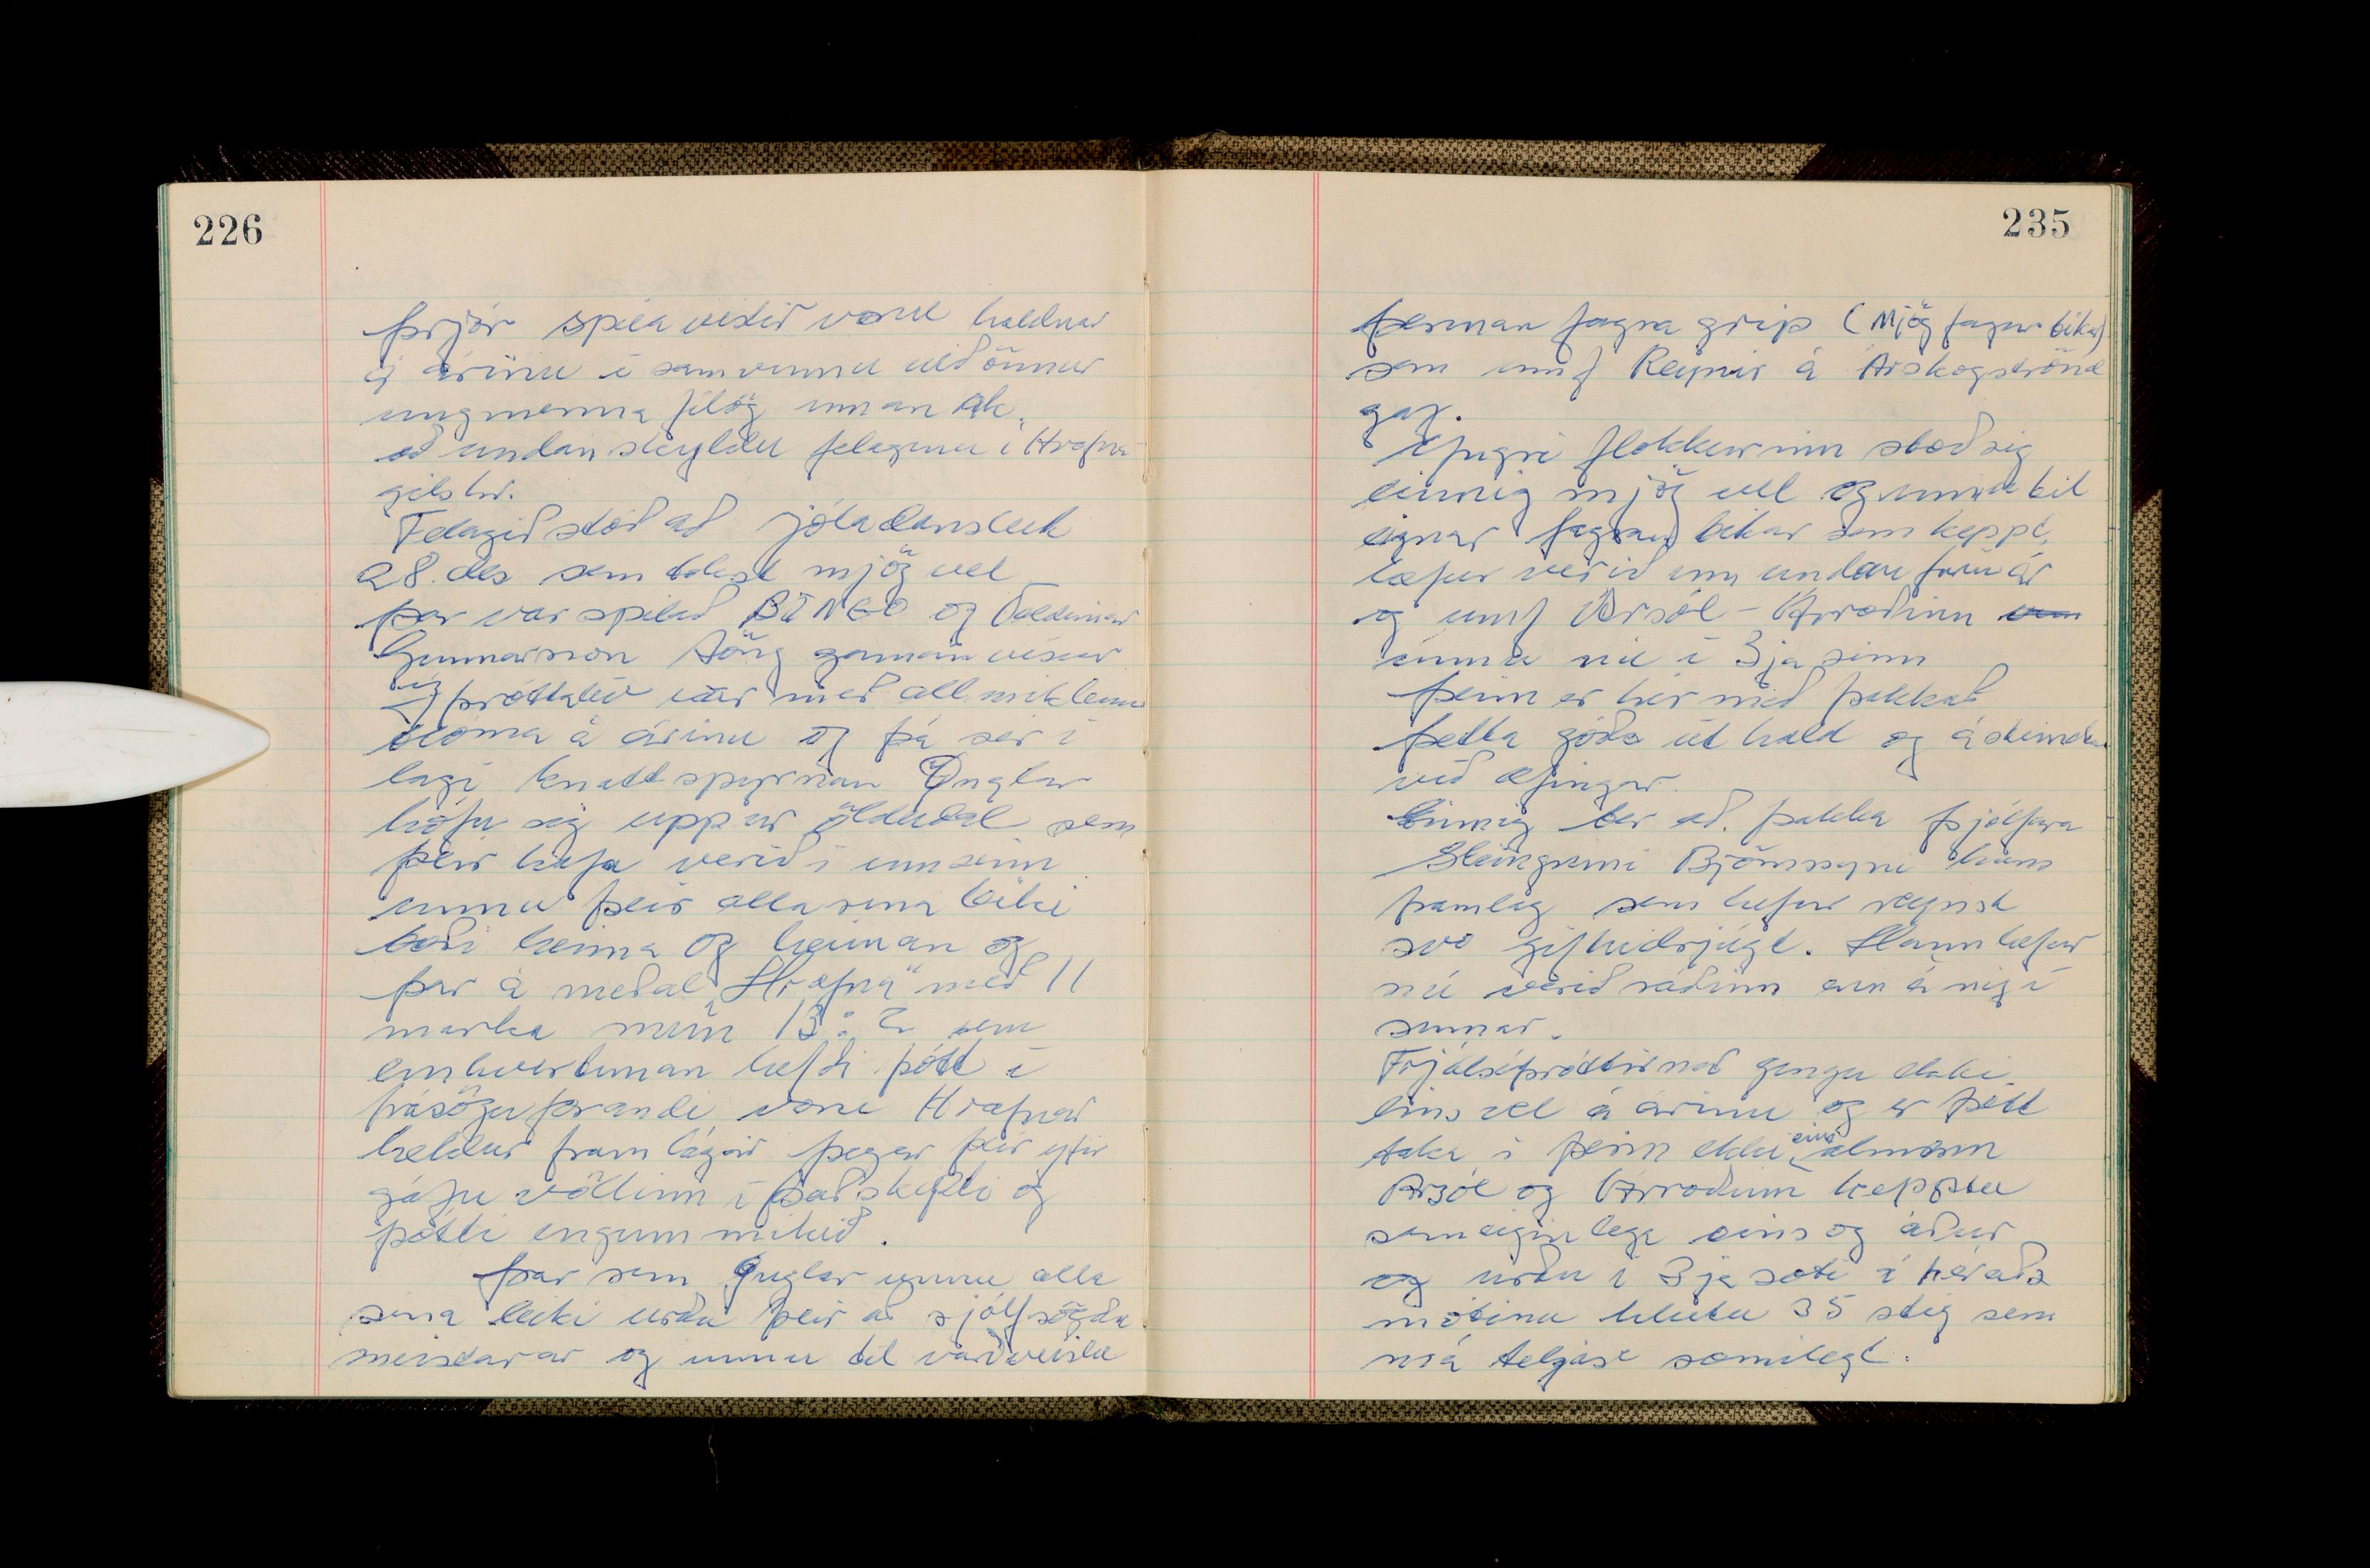 226
þrjár spila vistir voru haldnar
á árinu í samvinnu við önnur
ungmenna félög innan
að undan skyldu felaginu í Hrafna
gilshr.
Felagið stóð að jóladansleik
28. des sem tókst mjög vel
þar var spilað BINGO og Valdimar
Gunnarsson söng gaman vísur
Íþróttalív var með all miklum
blóma á árinu og þá sér í
lagi knattspyrnan Ynglar
hófu sig upp úr öldudal sem
þeir hafa verið í um sinn
unnu þeir alla sina leiki
bæði heima og heiman og
þar á meðal "Hrafna" með 11
marka mun 13:2 sem
einhverntiman hefði þótt í
frásögu færandi voru Hrafnar
heldur framlágir þegar þeir yfir
gáfu völlinn í það skifti og
þótti engum mikið.
Þar sem Ynglar unnu alla
sina leiki urðu þeir að sjálfsögðu
meistarar og unnu til varðveislu
235
þennan fagra grip (Mjög fagur bikar)
sem umf Reynir á Árskogströnd
gaf.
Yngri flokkurinn stóð sig
einnig mjög vel og unnu til
eignar fagran bikar sem keppt
hefur verið um undan farin ár
og umf Ársól - Árroðinn
unnu nú í 3ja sinn
Þeim er hér með þakkað
þetta góða út hald og ástundun
við æfingar.
Einnig ber að þakka þjálfara
Steingrimi Björnssyni hans
framlag sem hefur reynst
svo giftudrjúgt. Hann hefur
nú verið ráðinn enn á ný í
sumar.
Frjálsíþróttirnar gengu ekki
eins vel á árinu og er þátt
taka í þeim ekki eins almenn
Ársól og Árroðinn kepptu
sameiginlega eins og áður
og urðu í 3ja sæti á héraðs
mótinu hlutu 35 stig sem
má teljast sæmilegt.